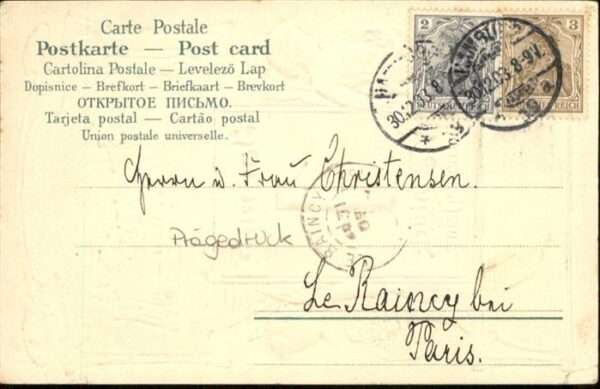 Carte Postale
Postkarte — Post card
Cartolina Postale – Levelező Lap
Dopisnice – Brefkort – Briefkaart – Brevkort
ОТКРЫТОЕ ПИСЬМО.
Tarjeta postal – Cartão postal
Union postale universelle.
2
3
30.12.03.8
30.12.03.8-9V.
Herrn u. Frau Christensen.
RAINCY
Prägedruck
Le Raincy bei
Paris.